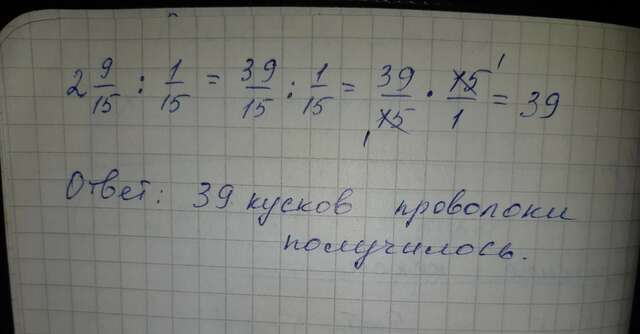 2 9/15 : 1/15 = 39/15 : 1/15 = 39/15 · 15/1 = 39
Ответ: 39 кусков проволоки
получилось.